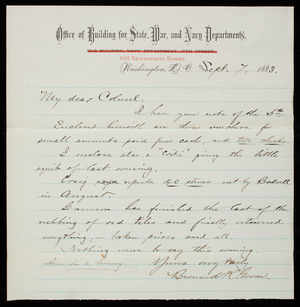 Office of Building for State, War, and Navy Departments.
OLD BUILDING, NAVY DEPARTMENT, 17TH STREET,
515 SEVENTEENTH STREET
Washington, D.C. Sept. 7, 1883.
My dear Colonel:
I have your note of the 5th
Enclosed herewith are three vouchers for
small amounts paid for cash, and two checks.
I enclose also a "Critic" giving the little
squib of last evening.
Craig reports 40 stones cut by Bodwell
in August.
has finished the last of the
rubbing of old tiles and finally returned
everything - broken pieces and all.
Nothing more to say this evening.
Am in a hurry Yours very truly,
Bernard R. Green